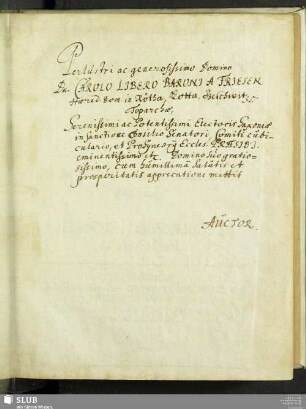 Perlustri ac generosissimo Domino
Dn. CAROLO LIBERO BARONI A FRIESEN
Hæred. Dom. in Rötha, Cotta, Geilsdorff
Toparchæ,
Serenissimi ac Potentissimi Electoris Saxoniæ
in Sanctiore Consilio Senatori, Comiti cubi-
culario, et Pro Synedrii Eccles. PRÆSIDI
eminentissimo etc. Domino suo gratio-
sissimo, cum humillima salutis et
prosperitatis apprecatione mittit
AUCTOR.
SLUB